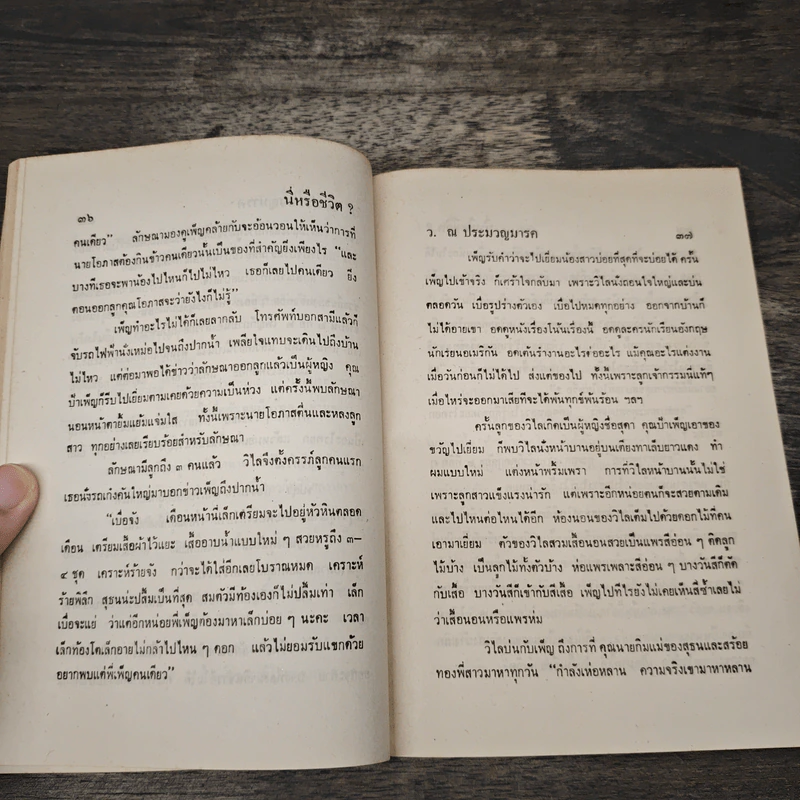 ๓๖
นี่หรือชีวิต ?
คนเดียว” ลักษณามองดูเพ็ญคล้ายกับจะอ้อนวอนให้เห็นว่าการที่
นายโอภาสต้องกินข้าวคนเดียวนั้นเป็นของที่สำคัญยิ่งเพียงไร “และ
บางทีเธอจะพาน้องไปไหนก็ไปไม่ไหว เธอก็เลยไปคนเดียว ยิ่ง
ตอนออกลูกคุณโอภาสจะว่ายังไงก็ไม่รู้”
เพ็ญทำอะไรไม่ได้ก็เลยลากลับ โทรศัพท์บอกสามีแล้วก็
จับรถไฟฟ้านั่งเหม่อไปจนถึงปากน้ำ เพลียใจแทบจะเดินไปถึงบ้าน
ไม่ไหว แต่ต่อมาพอได้ข่าวว่าลักษณาออกลูกแล้วเป็นผู้หญิง คุณ
ป้าเพ็ญก็รีบไปเยี่ยมตามเคยด้วยความเป็นห่วง แต่ครั้งนี้พบลักษณา
นอนหน้าตายิ้มแย้มแจ่มใส ทั้งนี้เพราะนายโอภาสตื่นและหลงลูก
สาว ทุกอย่างเลยเรียบร้อยสำหรับลักษณา
ลักษณามีลูกถึง ๓ คนแล้ว วิไลจึงตั้งครรภ์ลูกคนแรก
เธอนั่งรถเก๋งคันใหญ่มาบอกข่าวเพ็ญถึงปากน้ำ
“เบื่อจัง เดือนหน้านี้เล็กเตรียมจะไปอยู่หัวหินตลอด
เดือน เตรียมเสื้อผ้าไว้แยะ เสื้ออาบน้ำแบบใหม่ ๆ สวยหรูถึง ๓–
๔ ชุด เคราะห์ร้ายจัง กว่าจะได้ใส่อีกเลยโบราณหมด เคราะห์
ร้ายพิลึก สุธนน่ะปลื้มเป็นที่สุด สมตัวมีท้องเองก็ไม่ปลื้มเท่า เล็ก
เบื่อจะแย่ ว่าแต่อีกหน่อยพี่เพ็ญต้องมาหาเล็กบ่อย ๆ นะคะ เวลา
เล็กท้องโตเล็กอายไม่กล้าไปไหน ๆ ดอก แล้วไม่ยอมรับแขกด้วย
อยากพบแต่พี่เพ็ญคนเดียว”
ว. ณ ประมวญมารค
๓๗
เพ็ญรับคำว่าจะไปเยี่ยมน้องสาวบ่อยที่สุดที่จะบ่อยได้ ครั้น
เพ็ญไปเข้าจริง ก็เศร้าใจกลับมา เพราะวิไลนั่งถอนใจใหญ่และบ่น
ตลอดวัน เบื่อรูปร่างตัวเอง เบื่อไปหมดทุกอย่าง ออกจากบ้านก็
ไม่ได้อายเขา อดดูหนังเรื่องโน้นเรื่องนี้ อดดูละครนักเรียนอังกฤษ
นักเรียนอเมริกัน อดเต้นรำงานอะไรต่ออะไร แม้คุณอะไรแต่งงาน
เมื่อวันก่อนก็ไม่ได้ไป ส่งแต่ของไป ทั้งนี้เพราะลูกเจ้ากรรมนี่แท้ๆ
เมื่อไหร่จะออกมาเสียทีจะได้พ้นทุกข์พ้นร้อน ฯลฯ
ครั้นลูกของวิไลเกิดเป็นผู้หญิงชื่อสุดา คุณป้าเพ็ญเอาของ
ขวัญไปเยี่ยม ก็พบวิไลนั่งหน้าบานอยู่บนเตียงทาเล็บยาวแดง ทำ
ผมแบบใหม่ แต่งหน้าพริ้มเพรา การที่วิไลหน้าบานนั้นไม่ใช่
เพราะลูกสาวแข็งแรงน่ารัก แต่เพราะอีกหน่อยตนก็จะสวยตามเดิม
และไปไหนต่อไหนได้อีก ห้องนอนของวิไลเต็มไปด้วยดอกไม้ที่คน
เอามาเยี่ยม ตัวของวิไลสวมเสื้อนอนสวยเป็นแพรสีอ่อน ๆ ติดลูก
ไม้บ้าง เป็นลูกไม้ทั้งตัวบ้าง ห่อแพรเพลาะสีอ่อน ๆ บางวันสีก็ตัด
กับเสื้อ บางวันสีก็เข้ากับสีเสื้อ เพ็ญไปทีไรยังไม่เคยเห็นสีซ้ำเลยไม่
ว่าเสื้อนอนหรือแพรห่ม
วิไลบ่นกับเพ็ญ ถึงการที่ คุณนายกิมแม่ของสุธนและสร้อย
ทองพี่สาวมาหาทุกวัน “กำลังเห่อหลาน ความจริงเขามาหาหลาน